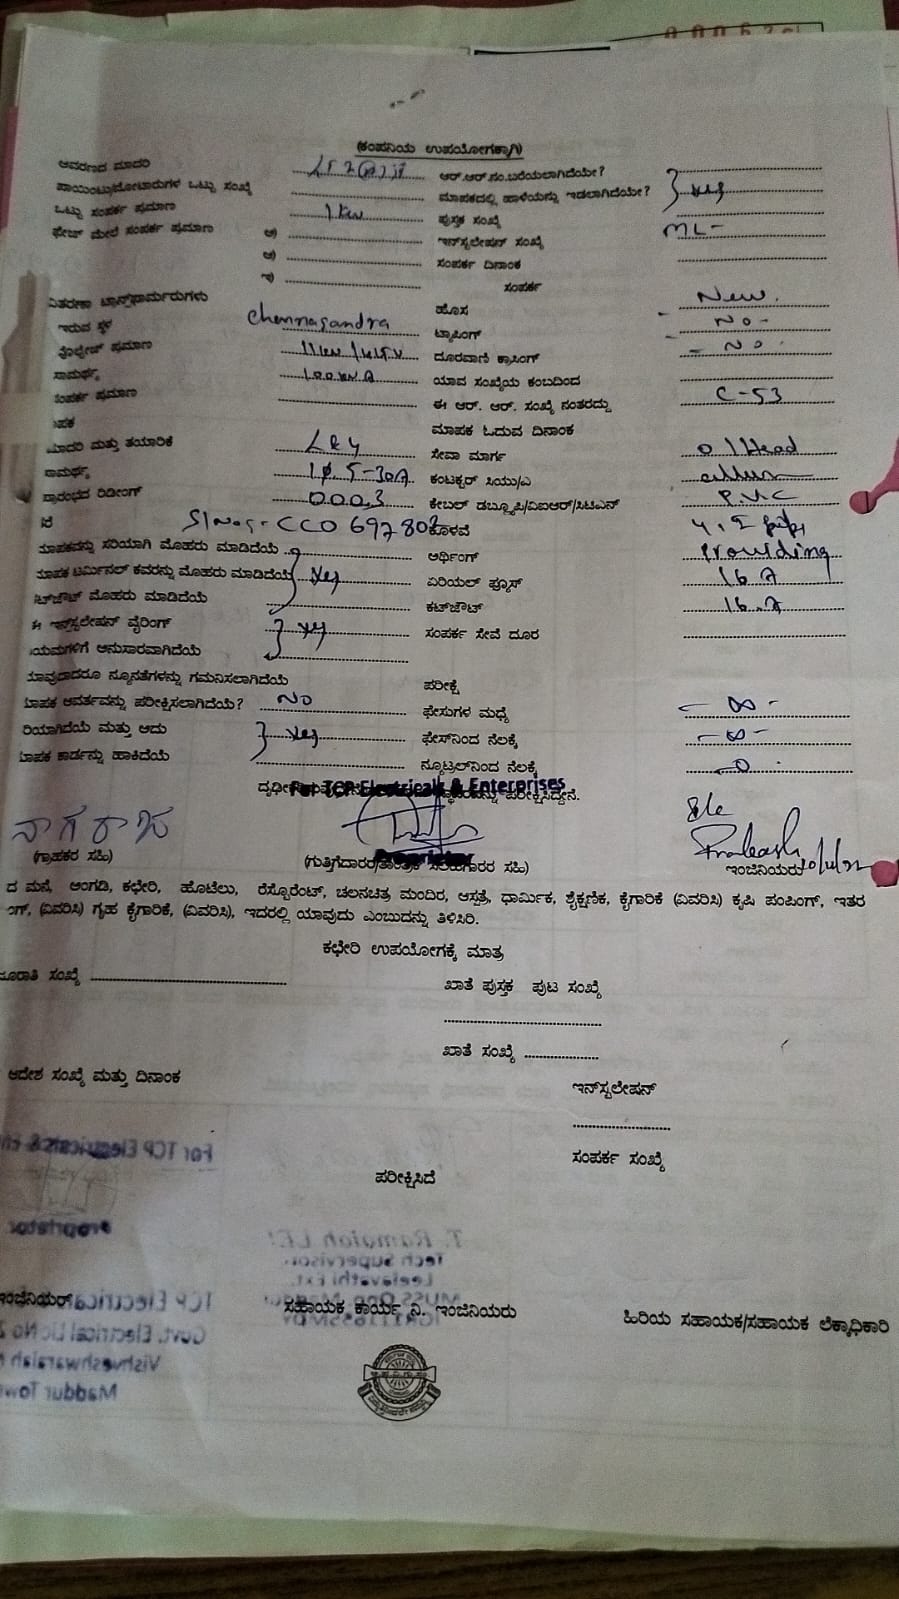 (ಕಂಪನಿಯ ಉಪಯೋಗಕ್ಕಾಗಿ)
ಆವರಣದ ಮಾದರಿ ಆರ್.ಆರ್.ನಂ.ಬರೆಯಲಾಗಿದೆಯೇ?
ಪಾಯಿಂಟ್ಸು/ಮೋಟಾರುಗಳ ಒಟ್ಟು ಸಂಖ್ಯೆ ಮಾಪಕದಲ್ಲಿ ಹಾಳೆಯನ್ನು ಇಡಲಾಗಿದೆಯೇ? yes
ಒಟ್ಟು ಸಂಪರ್ಕ ಪ್ರಮಾಣ 1kw ಪುಸ್ತಕ ಸಂಖ್ಯೆ
ಫೇಜ್ ಮೇಲೆ ಸಂಪರ್ಕ ಪ್ರಮಾಣ ಅ) ಇನ್‌ಸ್ಟಲೇಷನ್ ಸಂಖ್ಯೆ ML-
ಆ) ಸಂಪರ್ಕ ದಿನಾಂಕ
ಇ) ಸಂಪರ್ಕ
ವಿತರಣಾ ಟ್ರಾನ್ಸ್‌ಫಾರ್ಮರುಗಳು ಹೊಸ New.
ಇರುವ ಸ್ಥಳ Chennasandra ಟ್ಯಾಪಿಂಗ್ - No -
ವೋಲ್ಟೇಜ್ ಪ್ರಮಾಣ ದೂರವಾಣಿ ಕ್ರಾಸಿಂಗ್ - No
ಸಾಮರ್ಥ್ಯ ಯಾವ ಸಂಖ್ಯೆಯ ಕಂಬದಿಂದ
ಸಂಪರ್ಕ ಪ್ರಮಾಣ ಈ ಆರ್. ಆರ್. ಸಂಖ್ಯೆ ನಂತರದ್ದು C-53
ಮಾಪಕ ಓದುವ ದಿನಾಂಕ
ಮಾದರಿ ಮತ್ತು ತಯಾರಿಕೆ ಸೇವಾ ಮಾರ್ಗ O/Head
ಸಾಮರ್ಥ್ಯ 5-30A ಕಂಟಕ್ಟರ್ ಸಿಯು/ಎ
ಪ್ರಾರಂಭದ ರಿಡೀಂಗ್ 000.3 ಕೇಬಲ್ ಡಬ್ಲ್ಯೂಪಿ/ವಿಐಆರ್/ಸಿಟಿಎನ್ P.V.C
Sl No:- CCO 697802 ಕೊಳವೆ
ಮಾಪಕವನ್ನು ಸರಿಯಾಗಿ ಮೊಹರು ಮಾಡಿದೆಯೆ ಅರ್ಥಿಂಗ್ Providing
ಮಾಪಕ ಟರ್ಮಿನಲ್ ಕವರನ್ನು ಮೊಹರು ಮಾಡಿದೆಯೆ yes ಏರಿಯಲ್ ಫ್ಯೂಸ್ 16 A
ಕಟ್‌ಜೌಟ್ ಮೊಹರು ಮಾಡಿದೆಯೆ ಕಟ್‌ಜೌಟ್ 16.A
ಈ ಇನ್‌ಸ್ಟಲೇಷನ್ ವೈರಿಂಗ್ yes ಸಂಪರ್ಕ ಸೇವೆ ದೂರ
ನಿಯಮಗಳಿಗೆ ಅನುಸಾರವಾಗಿದೆಯೆ
ಯಾವುದಾದರೂ ನ್ಯೂನತೆಗಳನ್ನು ಗಮನಿಸಲಾಗಿದೆಯೆ ಪರೀಕ್ಷೆ
ಮಾಪಕ ಆವರ್ತವನ್ನು ಪರೀಕ್ಷಿಸಲಾಗಿದೆಯೆ? No ಫೇಸುಗಳ ಮಧ್ಯೆ - ∞ -
ಸರಿಯಾಗಿದೆಯೆ ಮತ್ತು ಅದು yes ಫೇಸ್‌ನಿಂದ ನೆಲಕ್ಕೆ - ∞ -
ಮಾಪಕ ಕಾರ್ಡನ್ನು ಹಾಕಿದೆಯೆ ನ್ಯೂಟ್ರಲ್‌ನಿಂದ ನೆಲಕ್ಕೆ - 0 -
For TCP Electricals & Enterprises
ಪರೀಕ್ಷಿಸಿದ್ದೇನೆ.
ನಾಗರಾಜ
Proprietor
(ಗ್ರಾಹಕರ ಸಹಿ) (ಗುತ್ತಿಗೆದಾರರ/ತಾಂತ್ರಿಕ ಸಲಹಗಾರರ ಸಹಿ) ಇಂಜಿನಿಯರು
ದ ಮನೆ, ಅಂಗಡಿ, ಕಛೇರಿ, ಹೊಟೆಲು, ರೆಸ್ಟೊರೆಂಟ್, ಚಲನಚಿತ್ರ ಮಂದಿರ, ಆಸ್ಪತ್ರೆ, ಧಾರ್ಮಿಕ, ಶೈಕ್ಷಣಿಕ, ಕೈಗಾರಿಕೆ (ವಿವರಿಸಿ) ಕೃಷಿ ಪಂಪಿಂಗ್, ಇತರ
ಂಗ್, (ವಿವರಿಸಿ) ಗೃಹ ಕೈಗಾರಿಕೆ, (ವಿವರಿಸಿ), ಇದರಲ್ಲಿ ಯಾವುದು ಎಂಬುದನ್ನು ತಿಳಿಸಿರಿ.
ಕಛೇರಿ ಉಪಯೋಗಕ್ಕೆ ಮಾತ್ರ
ಸಂಖ್ಯೆ ಖಾತೆ ಪುಸ್ತಕ ಪುಟ ಸಂಖ್ಯೆ
ಖಾತೆ ಸಂಖ್ಯೆ
ಆದೇಶ ಸಂಖ್ಯೆ ಮತ್ತು ದಿನಾಂಕ ಇನ್‌ಸ್ಟಲೇಷನ್
ಸಂಪರ್ಕ ಸಂಖ್ಯೆ
ಪರೀಕ್ಷಿಸಿದೆ
ಇಂಜಿನಿಯರ್ ಸಹಾಯಕ ಕಾರ್ಯ ನಿ. ಇಂಜಿನಿಯರು ಹಿರಿಯ ಸಹಾಯಕ/ಸಹಾಯಕ ಲೆಕ್ಕಾಧಿಕಾರಿ